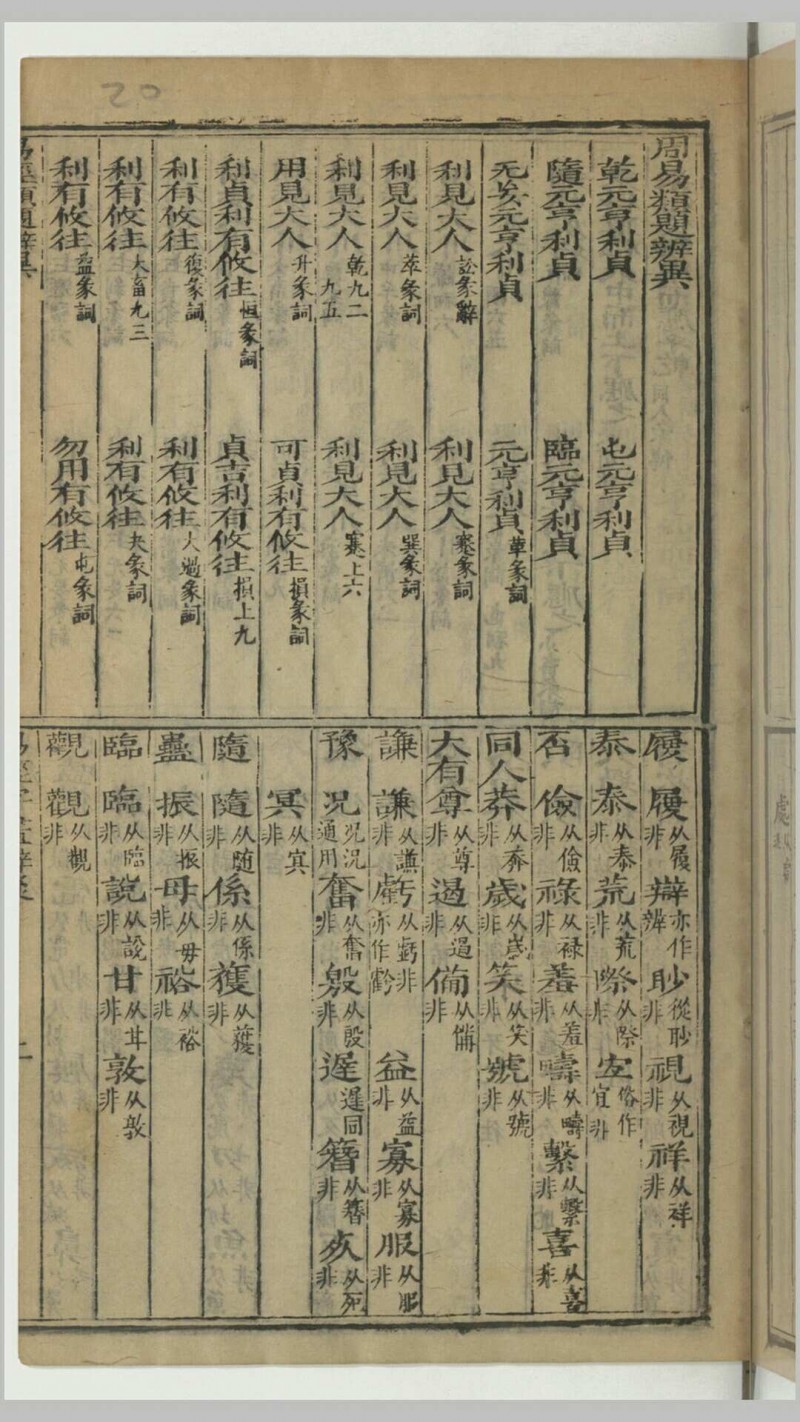 周易類題辨異
乾元亨利貞　屯元亨利貞
隨元亨利貞　臨元亨利貞
无妄元亨利貞　元亨利貞革彖詞
利見大人訟彖辭　利見大人蹇彖詞
利見大人萃彖詞　利見大人巽彖詞
利見大人乾九二九五　利見大人蹇上六
用見大人升彖詞　可貞利有攸往損彖詞
利貞利有攸往恒彖詞　貞吉利有攸往損上九
利有攸往復彖詞　利有攸往大過彖詞
利有攸往大畜九三　利有攸往夬彖詞
利有攸往益彖詞　勿用有攸往屯彖詞
履　履从履非　辯亦作辨　眇從眇非　視从視非　祥从祥非
泰　泰从泰非　荒从荒非　際从際非　宐俗作宜非
否　儉从儉非　祿从禄非　羞从羞非　疇从疇非　繫从繫非　喜从喜非
同人　莽从莽非　歲从歲非　笑从笑非　號从號非
大有　尊从尊非　遏从遏非　備从備非
謙　謙从謙非　虧从虧非亦作　益从益非　寡从寡非　服从服非
豫　況况況通用　奮从奮非　殷从殷非　遲遲同　簪从簪非　死从死非
冥从冥非
隨　隨从随非　係从係非　獲从獲非
蠱　振从振非　母从毋非　裕从裕非
臨　臨从臨非　說从說非　甘从甘非　敦从敦非
觀　觀从觀非